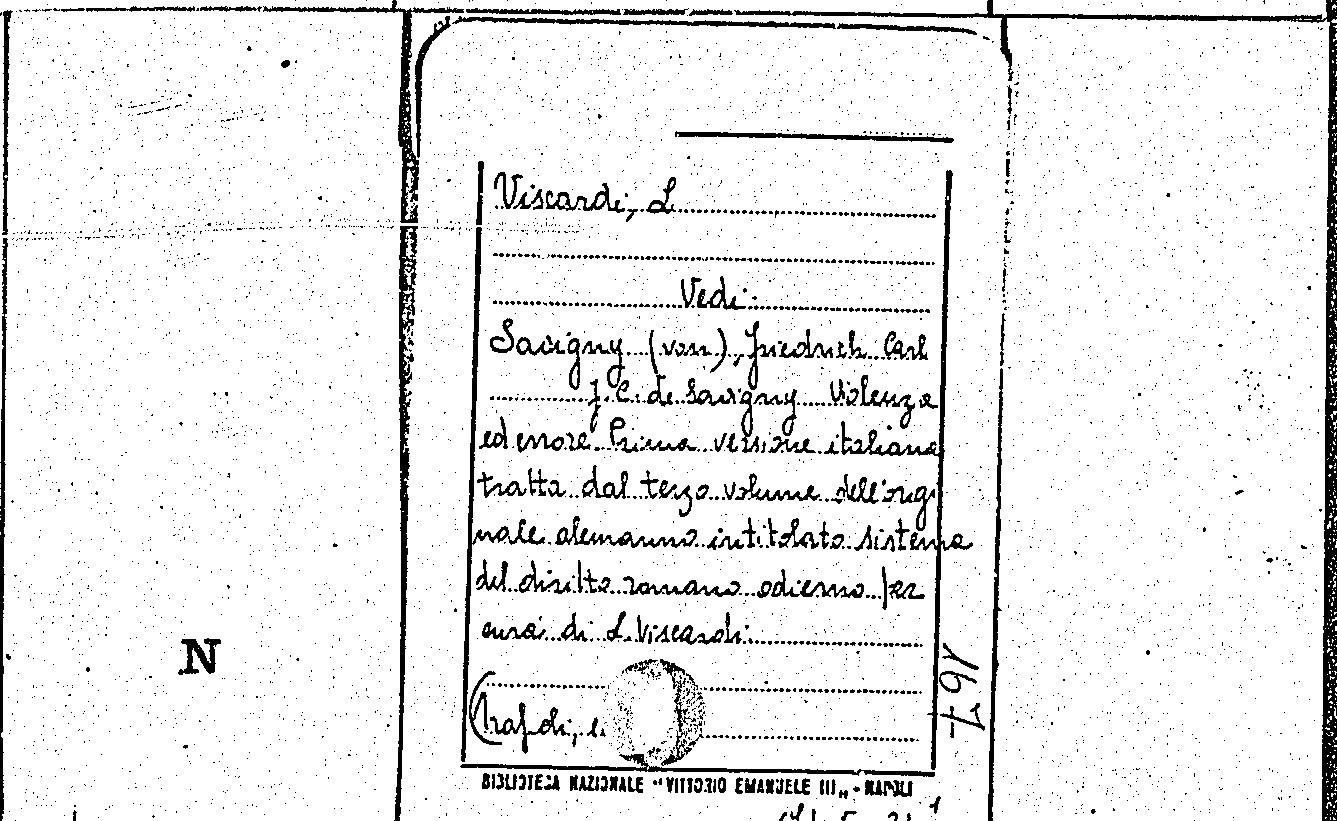 Viscardi, L
Vedi:
Savigny (von), Friedrich Carl
F. C. di Savigny Violenza
ed errore Prima versione italiana
tratta dal terzo volume dell'origi
nale alemanno intitolato sistema
del diritto romano odierno per
cura di L. Viscardi
(Trapdi,
167
BIBLIOTECA NAZIONALE "VITTORIO EMANUELE III" - NAPOLI
N